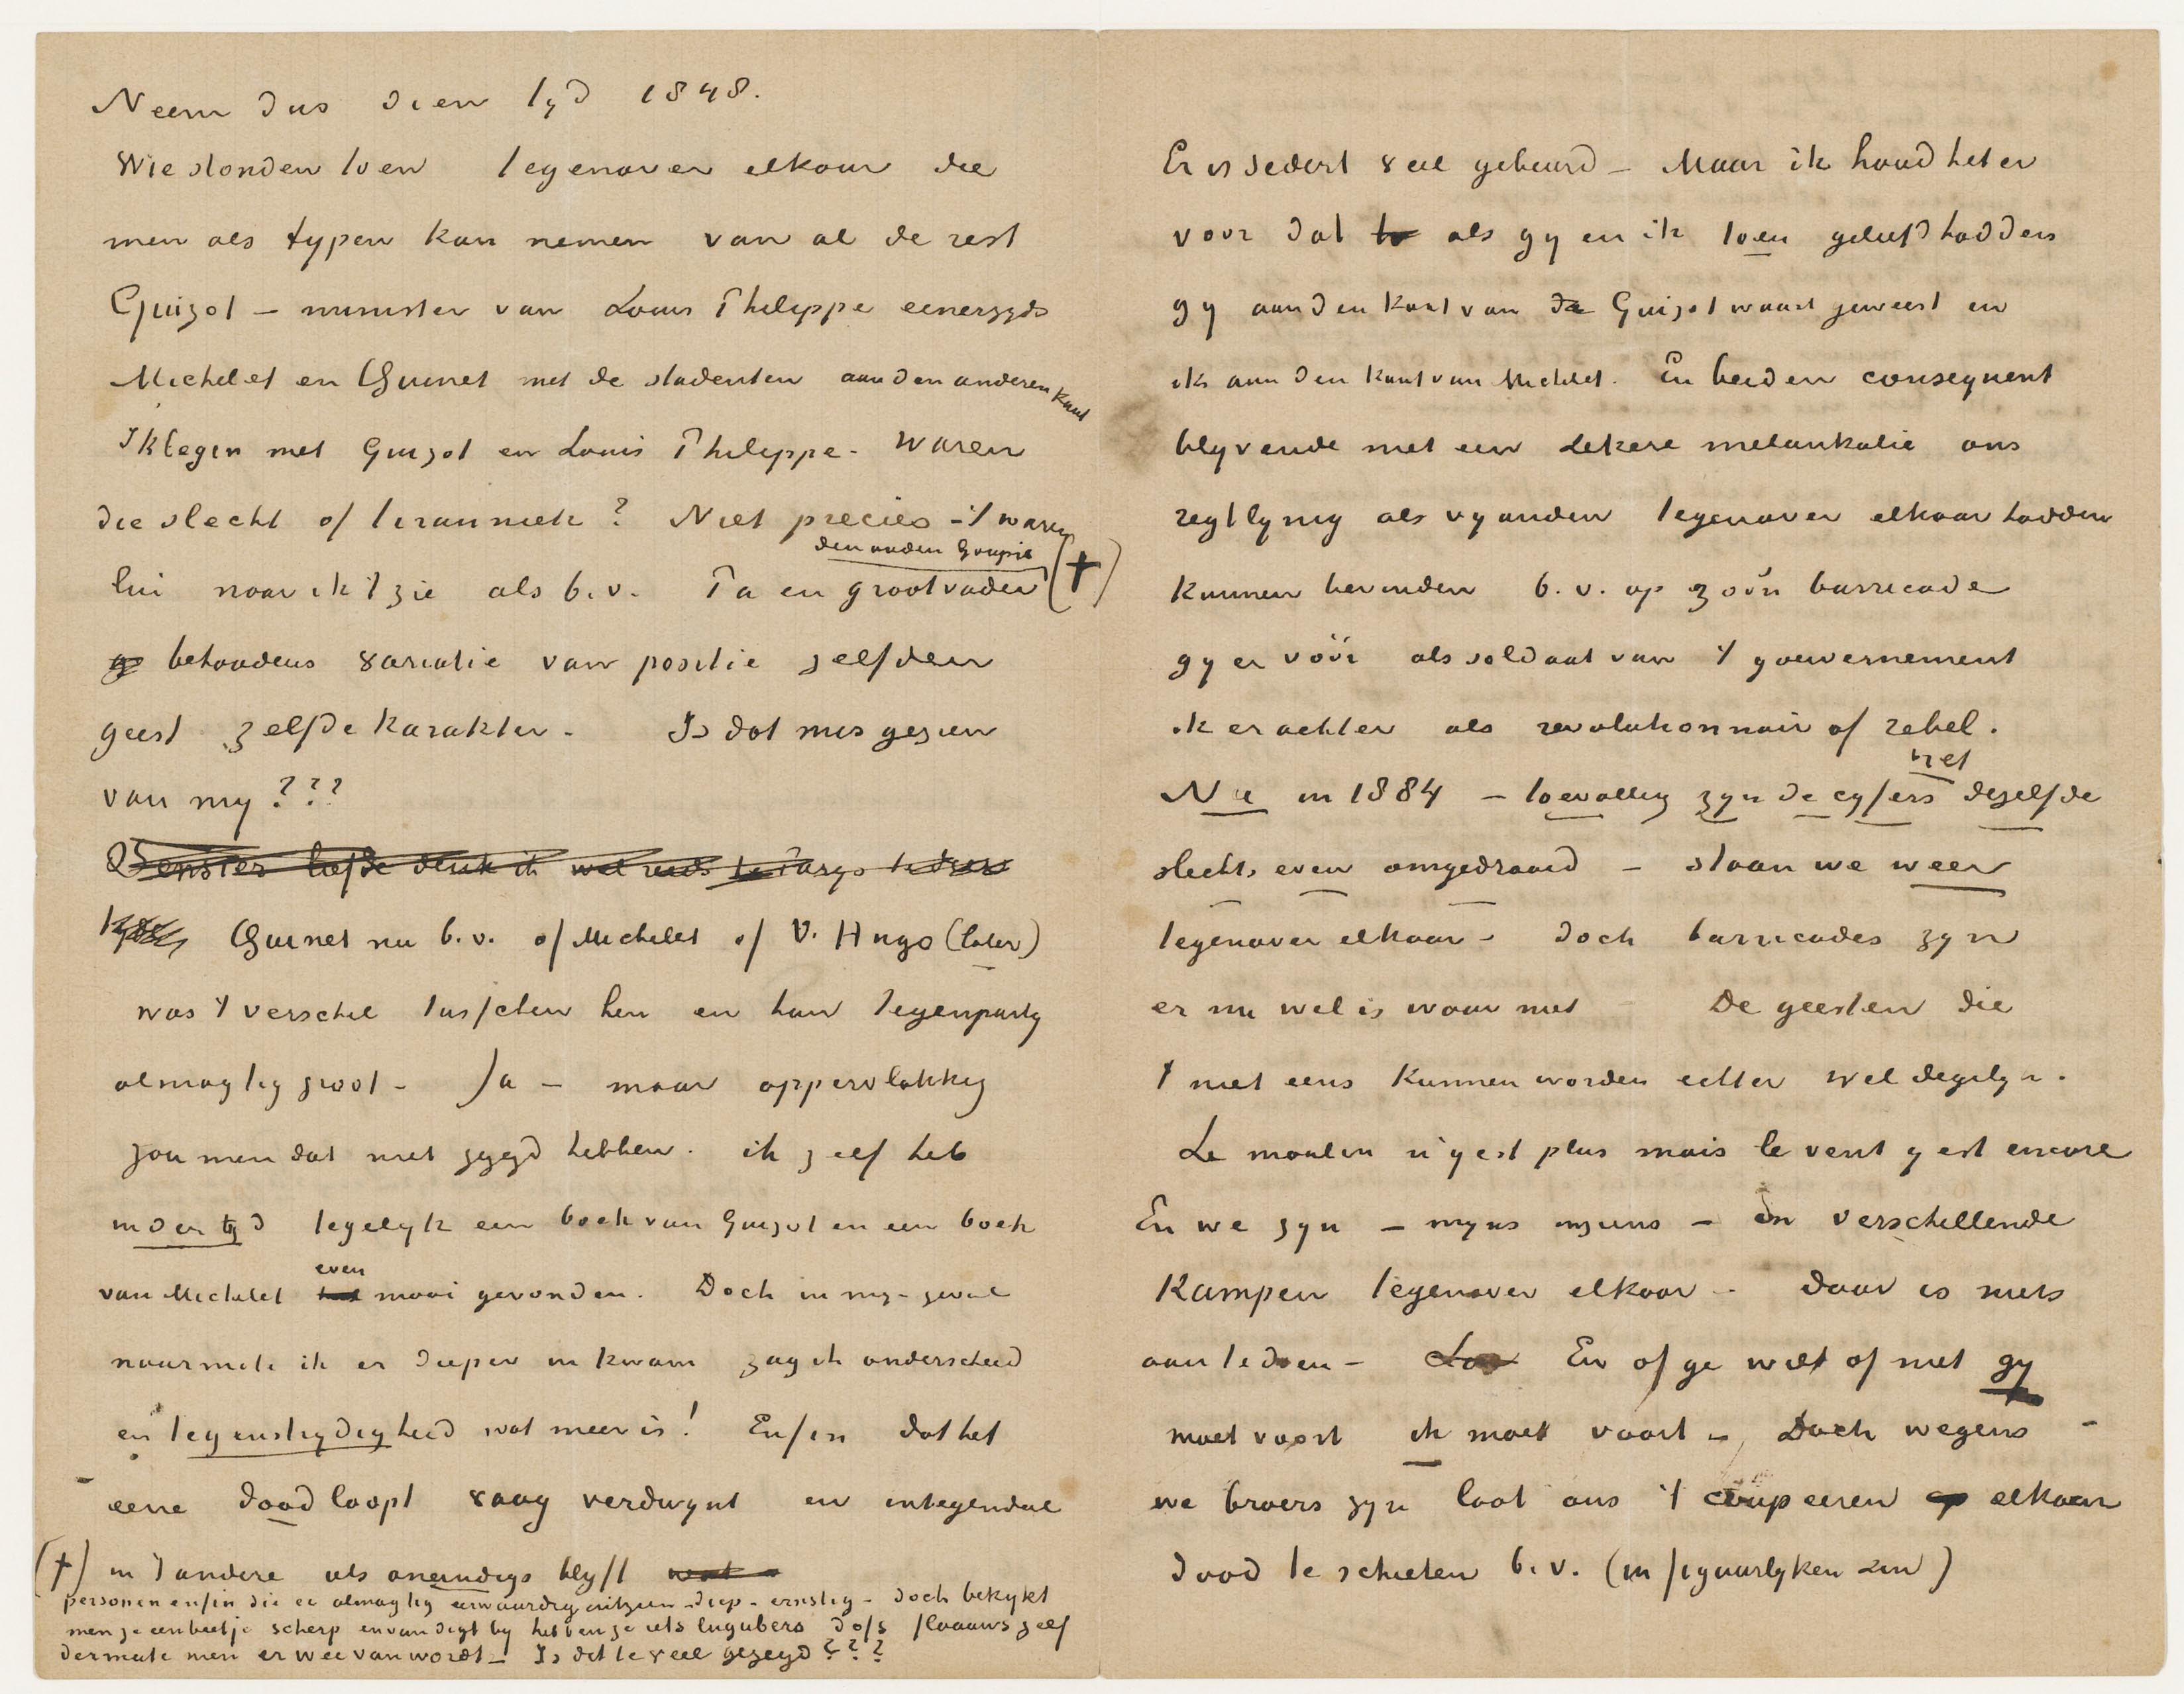 Neem dus dien tyd 1848.
Wie stonden toen tegenover elkaar die
men als typen kan nemen van al de rest
Guizot – minister van Louis Philippe eenerzyds
Michelet en Quinet met de studenten aan den anderen kant
Ik begin met Guizot en Louis Philippe. Waren
die slecht of tiranniek? Niet precies – 't waren
den ouden Goupil
lui naar ik 't zie als b.v. Pa en grootvader (†)
behoudens variatie van positie zelfden
geest zelfde karakter. Is dat mis gezien
van my???
Quinet nu b.v. of Michelet of V. Hugo (later)
was 't verschil tusschen hen en hun tegenparty
almagtig groot – Ja – maar oppervlakkig
zou men dat niet gezegd hebben. ik zelf heb
indertyd tegelyk een boek van Guizot en een boek
even
van Michelet mooi gevonden. Doch in myn geval
naarmate ik er dieper in kwam zag ik onderscheid
en tegenstrydigheid wat meer is! Enfin dat het
eene dood loopt vaag verdwynt en integendeel
(†) in 't andere als oneindigs blyft
personen enfin die er almagtig eerwaardig uitzien – diep – ernstig – doch bekykt
men ze een beetje scherp en van digt by hebben ze iets lugubers dofs flaauws zelf
dermate men er wee van wordt – Is dit te veel gezegd???
Er is sedert veel gebeurd – Maar ik houd het er
voor dat als gy en ik toen geleefd hadden
gy aan den kant van Guizot waart geweest en
ik aan den kant van Michelet. En beiden consequent
blyvende met een zekere melankolie ons
regtlynig als vyanden tegenover elkaar hadden
kunnen bevinden b.v. op zoo'n barricade
gy er vóór als soldaat van 't gouvernement
ik er achter als revolutionnair of rebel.
net
Nu in 1884 – toevallig zyn de cyfers dezelfde
slechts even omgedraaid – staan we weer
tegenover elkaar – doch barricades zyn
er nu wel is waar niet – De geesten die
't niet eens kunnen worden echter wel degelyk.
Le moulin n'y est plus mais le vent y est encore
En we zyn – myns inziens – in verschillende
kampen tegenover elkaar – daar is niets
aan te doen – En of ge wilt of niet gy
moet voort ik moet voort – Doch wegens
we broers zyn laat ons 't elkaar
dood te schieten b.v. (in figuurlyken zin)